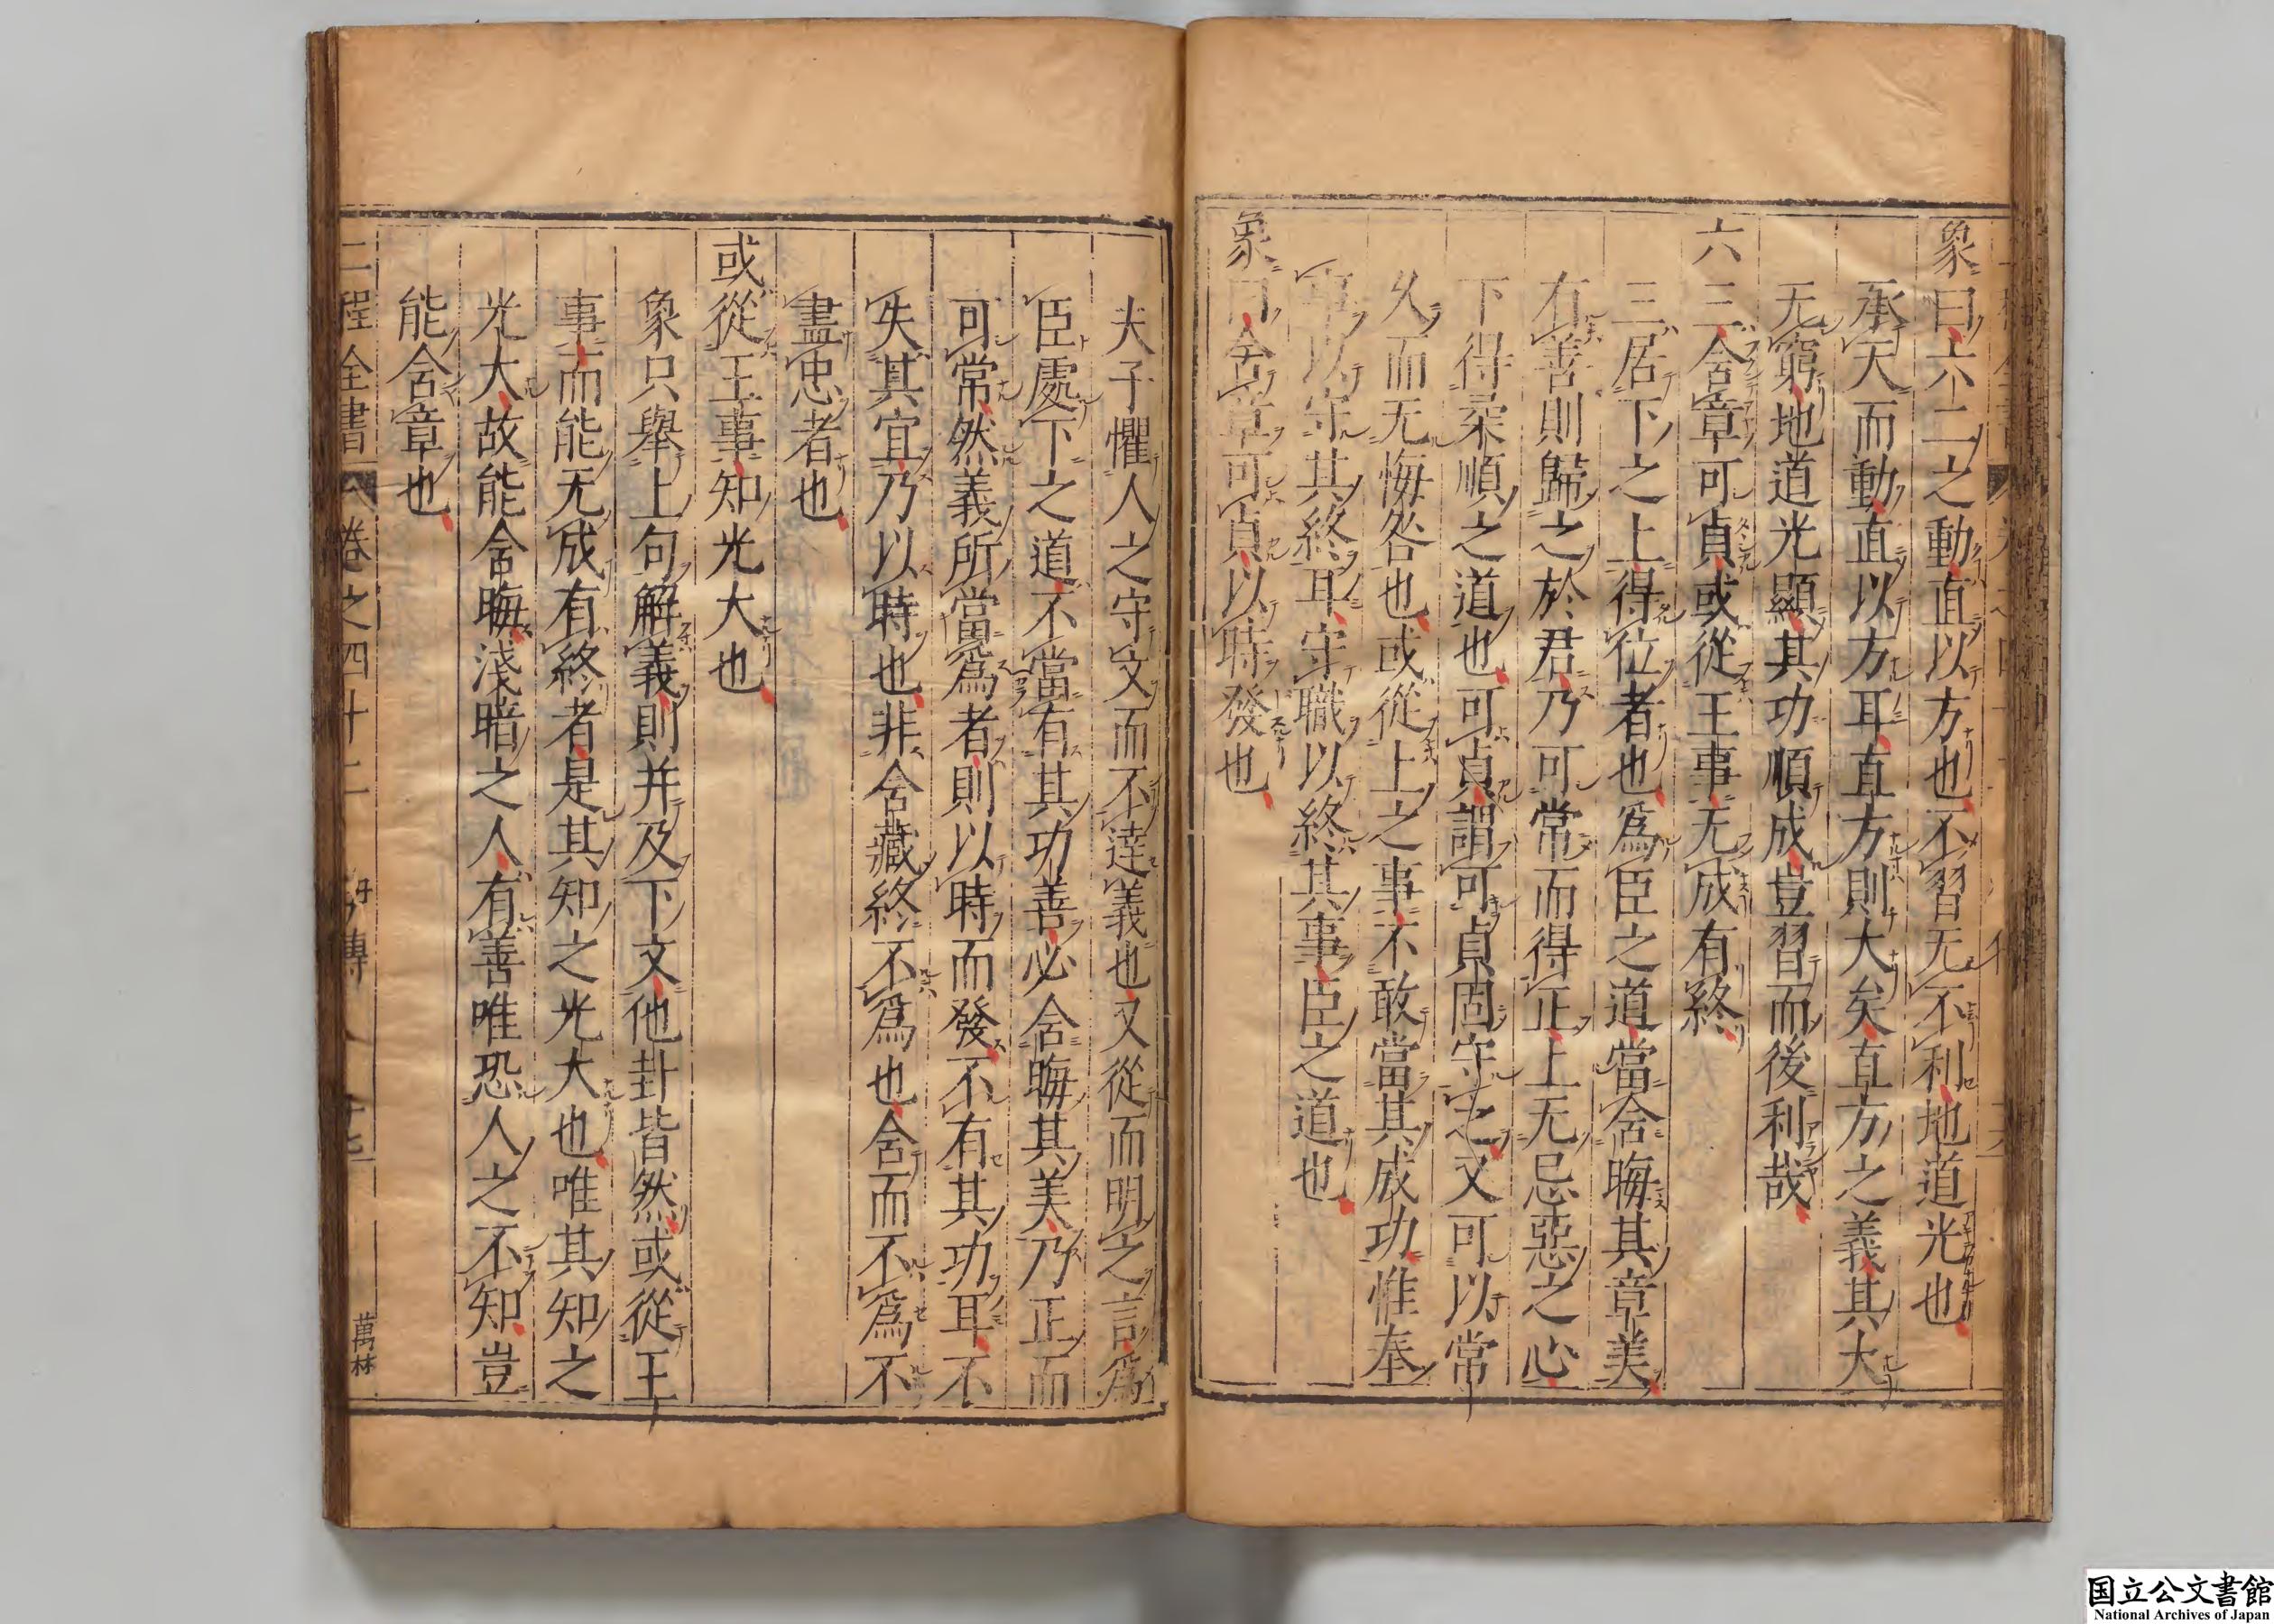 象曰六二之動直以方也不習无不利地道光也
承天而動直以方耳直方則大矣直方之義其大
无窮地道光顯其功順成豈習而後利哉
六三含章可貞或從王事无成有終
三居下之上得位者也爲臣之道當含晦其章美
有善則歸之於君乃可常而得正上无忌惡之心
下得柔順之道也可貞謂可貞固守之又可以常
久而无悔咎也或從上之事不敢當其成功惟奉
事以守其終耳守職以終其事臣之道也
象曰含章可貞以時發也
夫子懼人之守文而不達義也又從而明之言爲
臣處下之道不當有其功善必含晦其美乃正而
可常然義所當爲者則以時而發不有其功耳不
失其宜乃以時也非含藏終不爲也含而不爲不
盡忠者也
或從王事知光大也
象只舉上句解義則并及下文他卦皆然或從王
事而能无成有終者是其知之光大也唯其知之
光大故能含晦淺暗之人有善唯恐人之不知豈
能含章也
二程全書 卷之四十二 易傳 十七 萬林
国立公文書館
National Archives of Japan